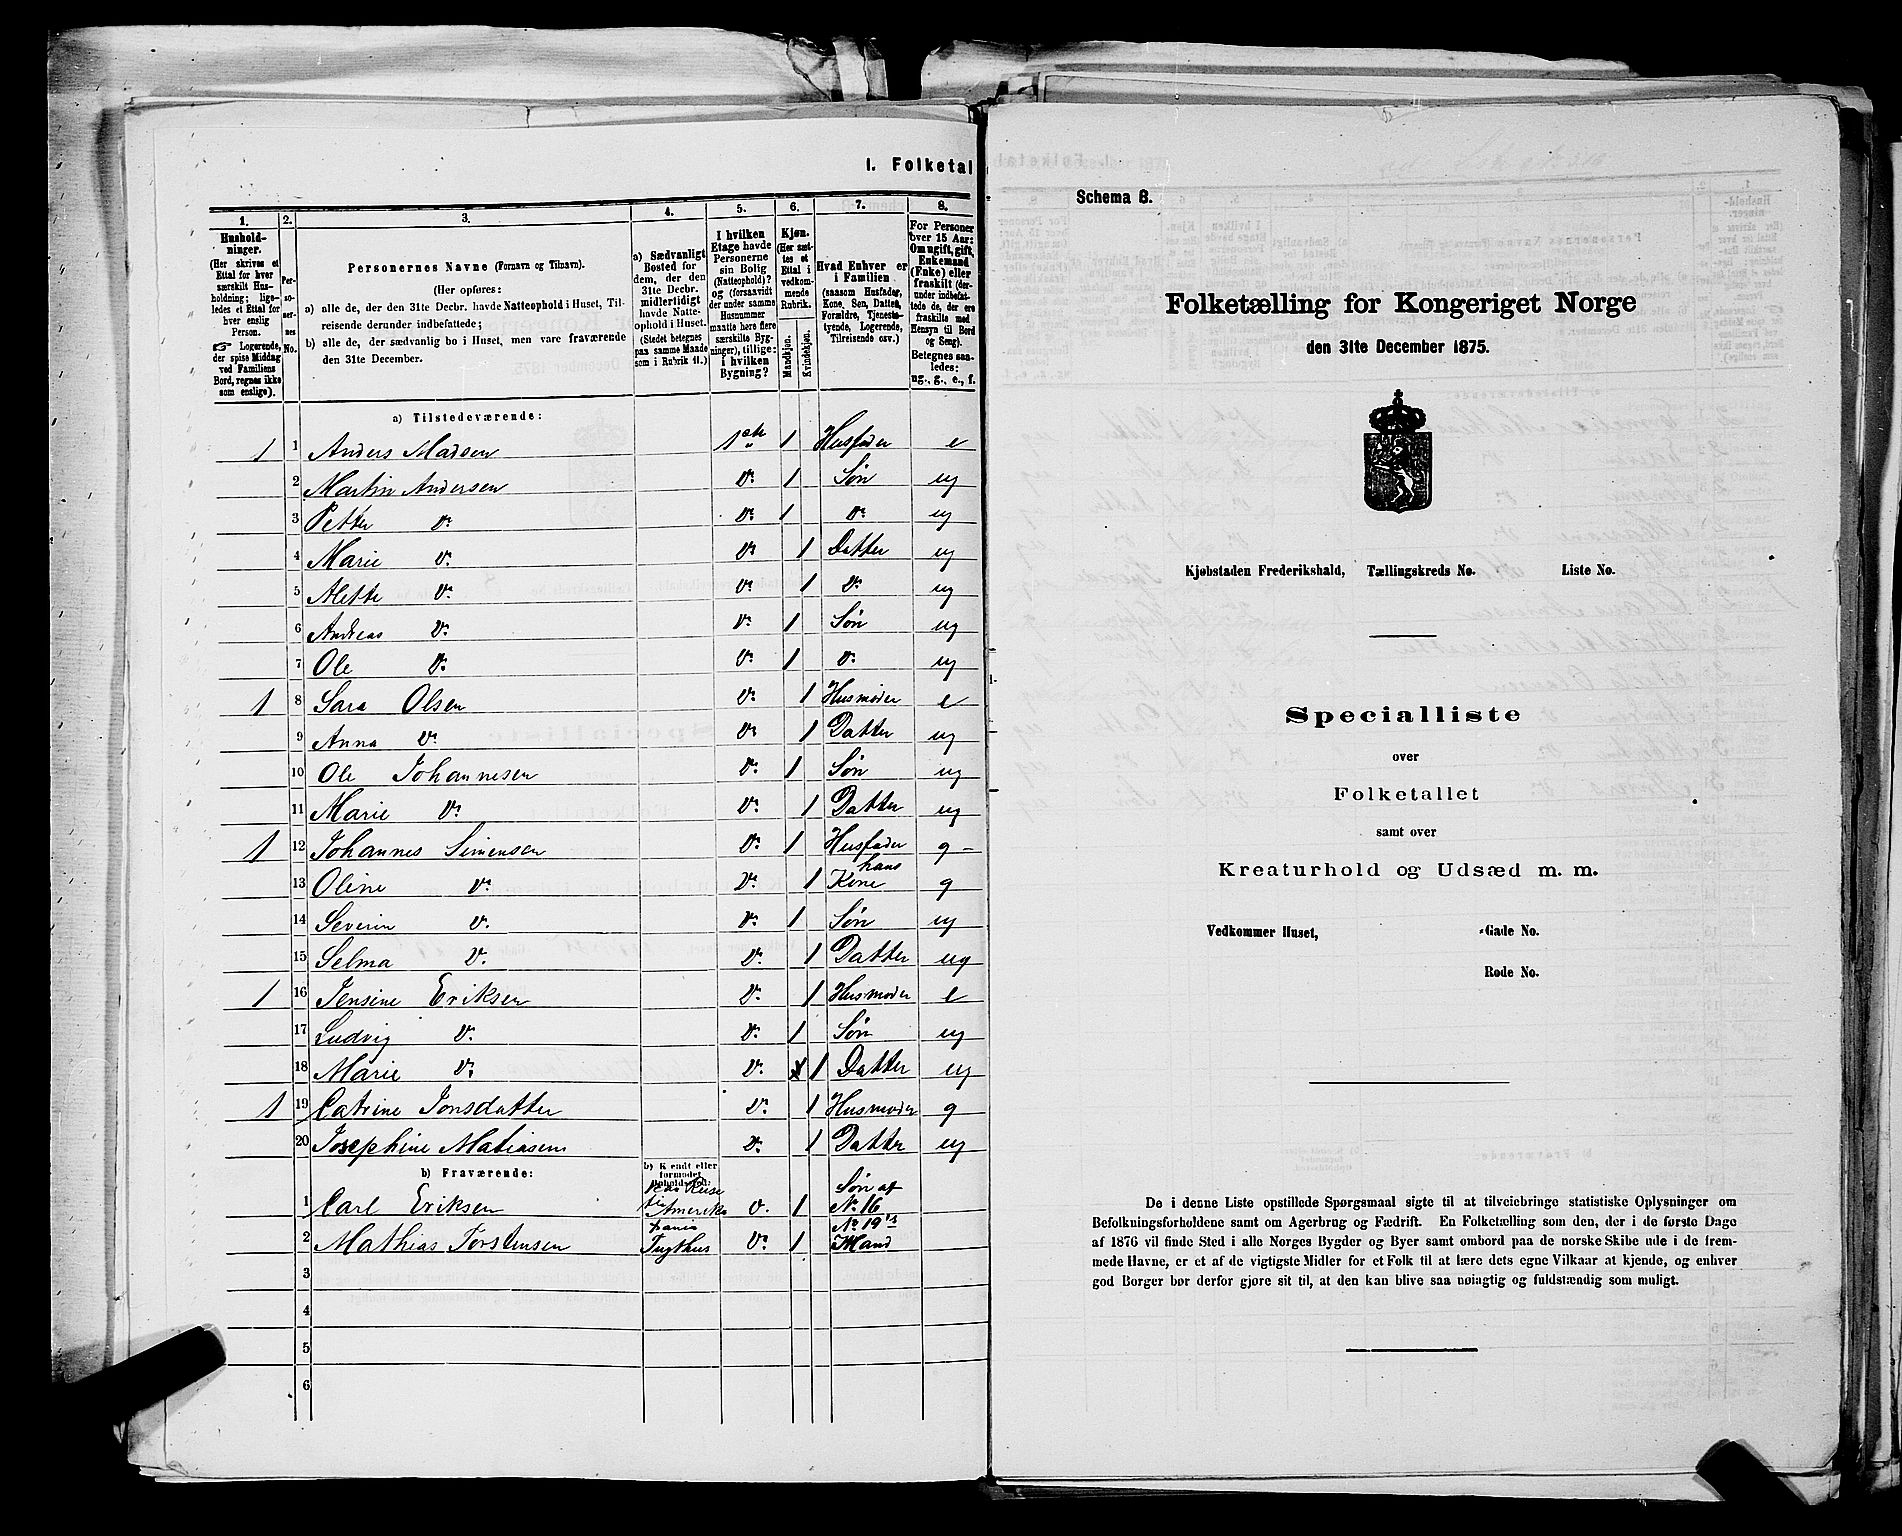 I. Folketal
1. 2. 3. 4. 5. 6. 7. 8.
Hushold-
ninger.
(Her skrives et
Ettal for hver
særskilt Hus-
holdning; lige-
ledes et Ettal for
hver enslig
Person.
☞ Logerende,
der spise Middag
ved Familiens
Bord, regnes ikke
som enslige).
Per-
so-
ner-
nes
No.
Personernes Navne (Fornavn og Tilnavn).
(Her opføres:
a) alle de, der den 31te Decbr. havde Natteophold i Huset, Til-
reisende derunder indbefattede;
b) alle de, der sædvanlig bo i Huset, men vare fraværende
den 31te December.
a) Sædvanligt
Bosted for
dem, der den
31te Decbr.
midlertidigt
havde Natte-
ophold i Huset.
(Stedet betegnes
paa samme Maade
som i Rubrik 11.)
I hvilken
Etage havde
Personerne
sin Bolig
(Natteophold)?
og (forsaavidt
der under samme
Husnummer
maatte høre flere
særskilte Byg-
ninger), tillige:
i hvilken
Bygning?
Kjøn.
(Her sæt-
tes et
Ettal i
vedkom-
mende
Rubrik.
Mandkjøn.
Kvindekjøn.
Hvad Enhver er
i Familien
(saasom Husfader,
Kone, Søn, Datter,
Forældre, Tjeneste-
tyende, Logerende,
Tilreisende osv.)
For Personer
over 15 Aar:
Om ugift, gift,
Enkemand
(Enke) eller
fraskilt (der-
under indbefat-
tede de, der ere
fraskilte med
Hensyn til Bord
og Seng).
Betegnes saa-
ledes:
ug., g., e., f.
a) Tilstedeværende:
1 1 Anders Madsen 1ste 1 Husfader e
2 Martin Andersen Do 1 Søn ug
3 Petter Do Do 1 Do ug
4 Marie Do Do 1 Datter ug
5 Alette Do Do 1 Do ug
6 Andreas Do Do 1 Søn ug
7 Ole Do Do 1 Do ug
1 8 Sara Olsen Do 1 Husmoder e
9 Anna Do Do 1 Datter ug
10 Ole Johannesen Do 1 Søn ug
11 Marie Do Do 1 Datter ug
1 12 Johannes Simensen Do 1 Husfader g
13 Oline Do Do 1 hans Kone g
14 Severin Do Do 1 Søn ug
15 Selma Do Do 1 Datter ug
1 16 Jensine Eriksen Do 1 Husmoder e
17 Ludvig Do Do 1 Søn ug
18 Marie Do Do 1 Datter ug
1 19 Catrine Jonsdatter Do 1 Husmoder g
20 Josephine Matiasen Do 1 Datter ug
b) Fraværende:
b) Kjendt eller
formodet
Opholdssted:
1 Carl Eriksen paa Reise til Amerika Do 1 Søn af No 16
2 Mathias Torstensen Tugthus Do 1 No 19's Mand
3
4
5
6
Schema 8.
Folketælling for Kongeriget Norge
den 31te December 1875.
Kjøbstaden Frederikshald, Tællingskreds No. Liste No.
Specialliste
over
Folketallet
samt over
Kreaturhold og Udsæd m. m.
Vedkommer Huset, Gade No.
Rode No.
De i denne Liste opstillede Spørgsmaal sigte til at tilveiebringe statistiske Oplysninger om
Befolkningsforholdene samt om Agerbrug og Fædrift. En Folketælling som den, der i de første Dage
af 1876 vil finde Sted i alle Norges Bygder og Byer samt ombord paa de norske Skibe ude i de frem-
mede Havne, er et af de vigtigste Midler for et Folk til at lære dets egne Vilkaar at kjende, og enhver
god Borger bør derfor gjøre sit til, at den kan blive saa nøiagtig og fuldstændig som muligt.